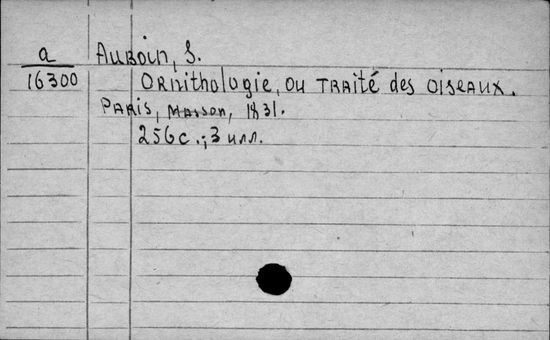 a
16300
Auboin, S.
Ornithologie, ou Traité des oiseaux.
Paris, Masson, 1831.
256 с.; 3 илл.